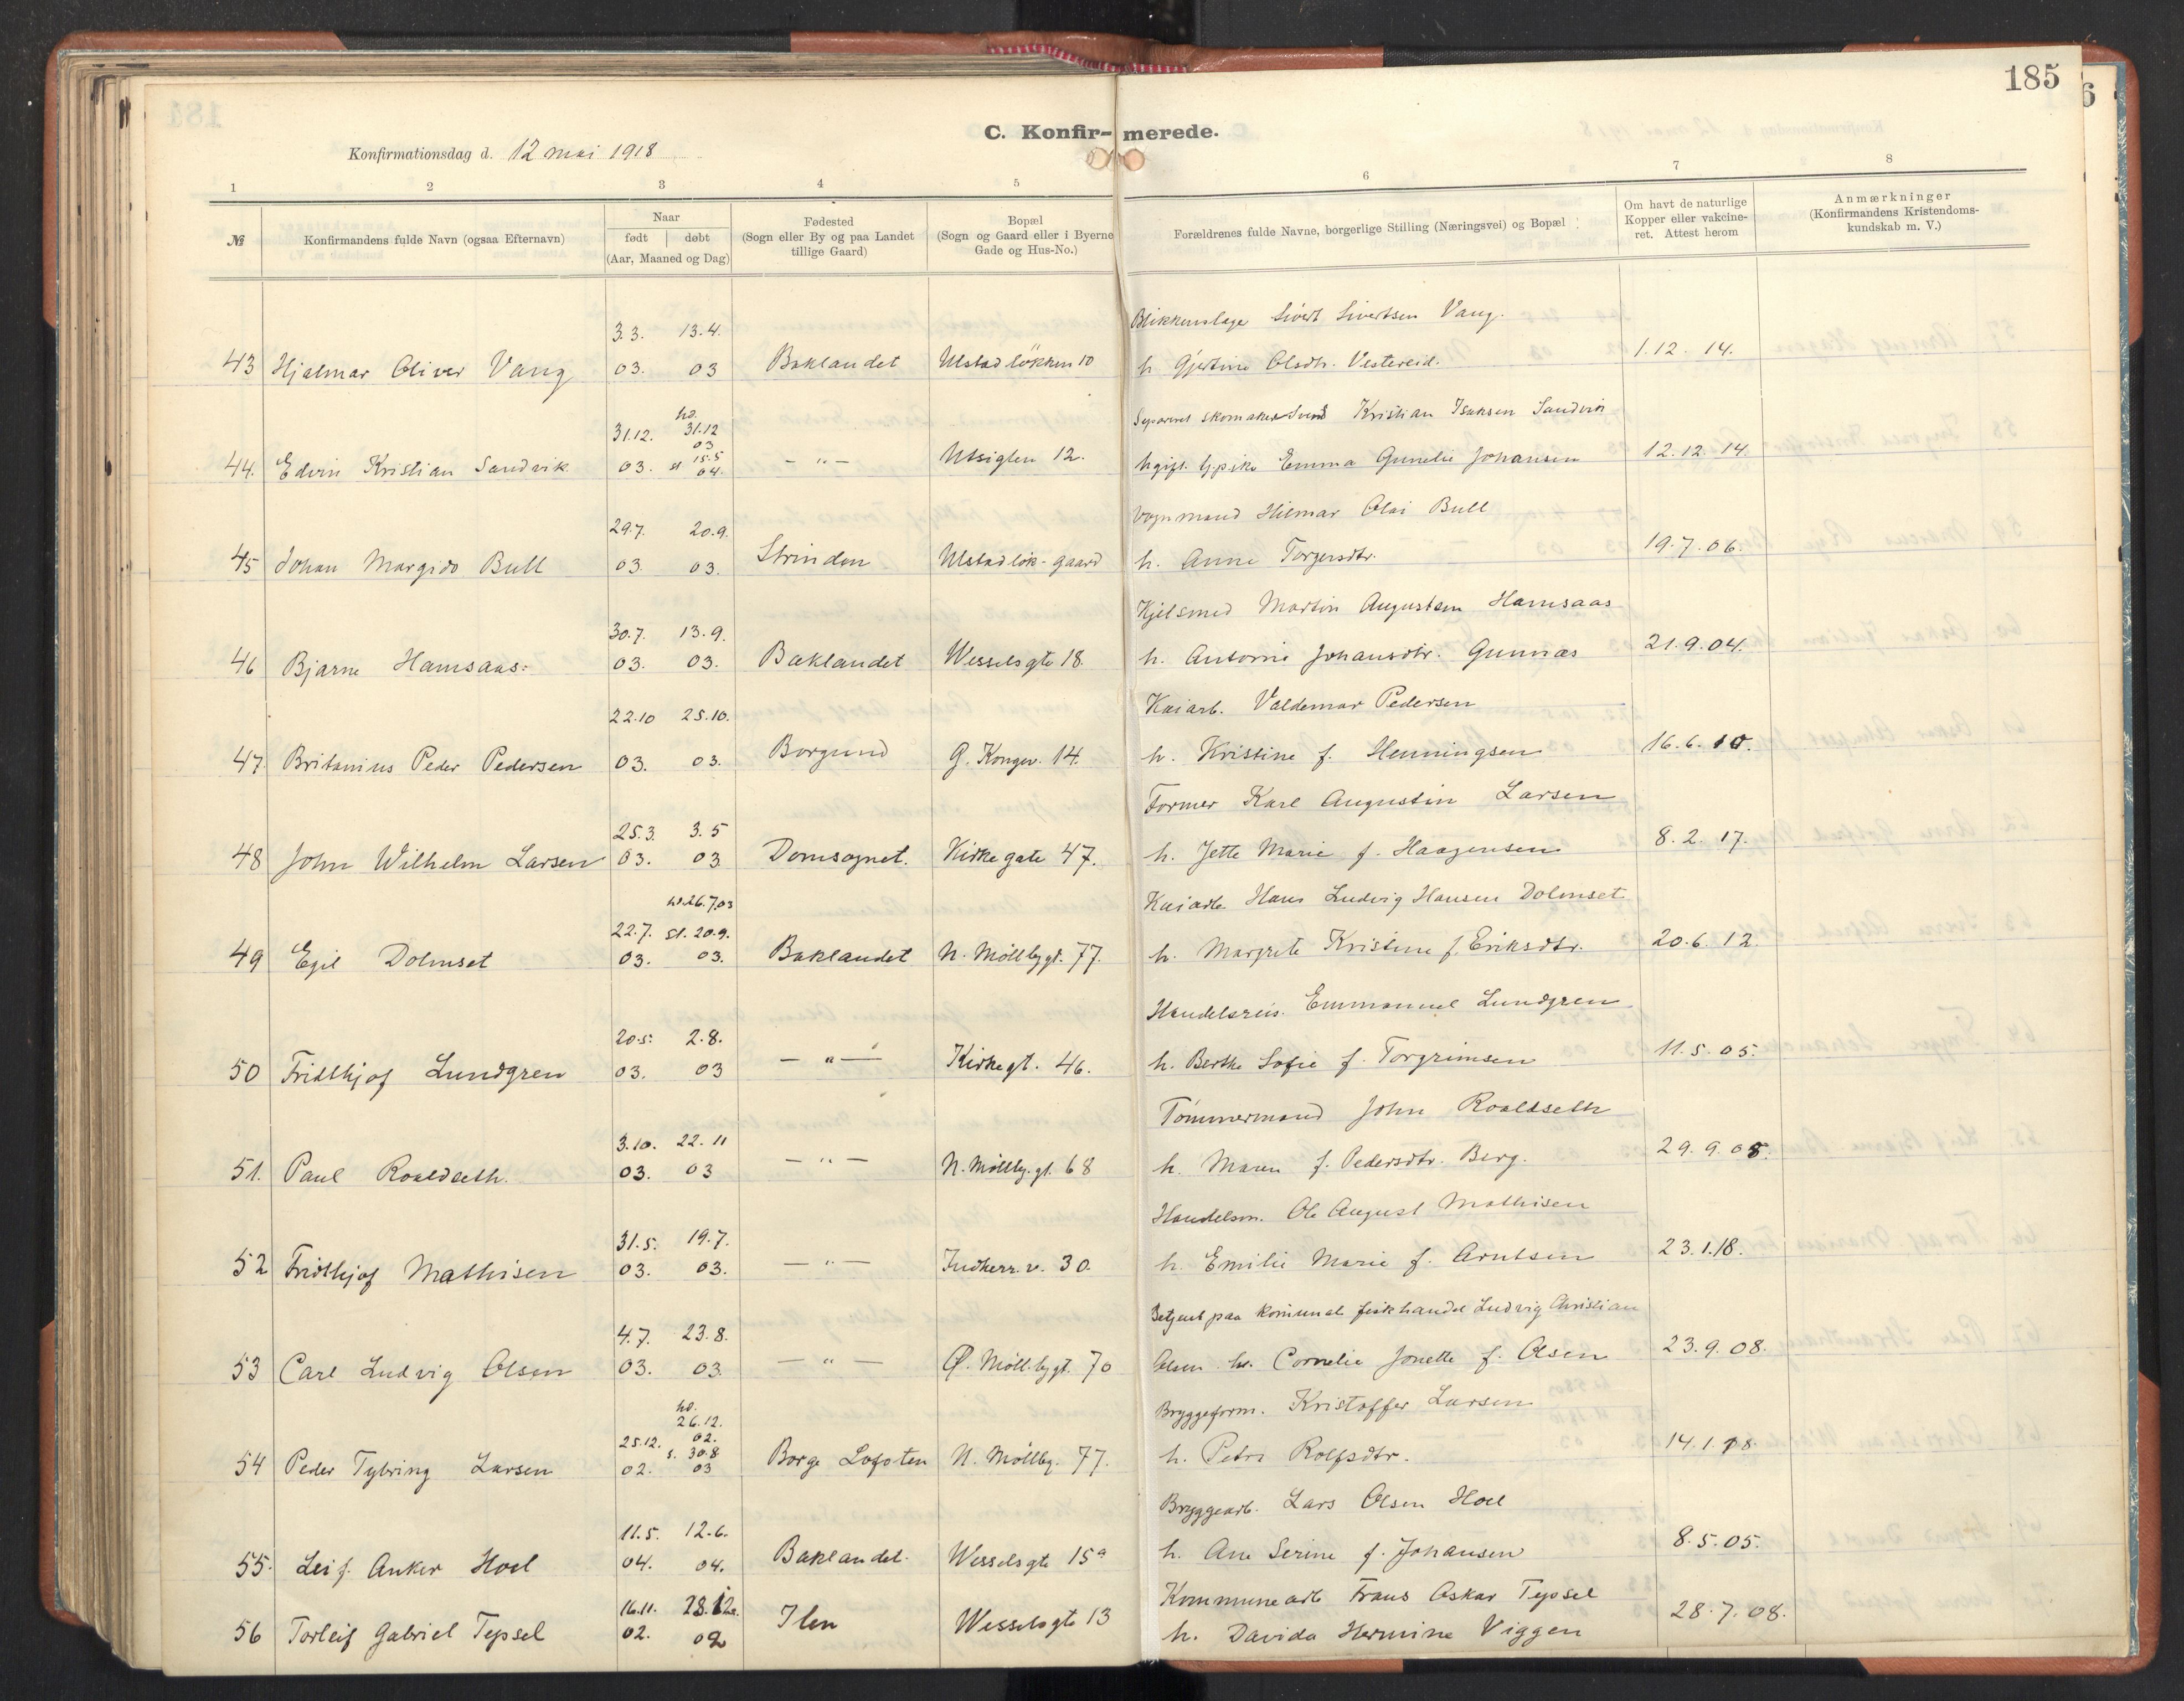 185
C. Konfirmerede.
Konfirmationsdag d. 12 mai 1918
1 2 3 4 5 6 7 8
№
Konfirmandens fulde Navn (ogsaa Efternavn)
Naar
født | døbt
(Aar, Maaned og Dag)
Fødested
(Sogn eller By og paa Landet
tillige Gaard)
Bopæl
(Sogn og Gaard eller i Byerne
Gade og Hus-No.)
Forældrenes fulde Navne, borgerlige Stilling (Næringsvei) og Bopæl
Om havt de naturlige
Kopper eller vakcine-
ret. Attest herom
Anmærkninger
(Konfirmandens Kristendoms-
kundskab m. V.)
3.3. 13.4. Blikkenslager Sivert Sivertsen Vang.
43 Hjalmar Oliver Vang 03. 03 Baklandet Ulstadløkken 10 h. Gjertine Olsdtr. Vestereid. 1.12. 14.
hd.
31.12. 31.12 Separeret skomakersvend Kristian Isaksen Sandvik
03
15.5
44. Edvin Kristian Sandvik 03. st 04. - " - Utsigten 12. Emma Gunelie Johansen 12.12.14.
29.7. 20.9. Vognmand Hilmar Olai Bull
45 Johan Margido Bull 03. 03. Strinden Ulstadløk-gaard h. Anne Torgersdtr. 19.7.06.
30.7. 13.9. Kjelsmed Martin Augustsen Hamsaas
46 Bjarne Hamsaas. 03. 03. Baklandet Wesselsgte 18. h. Antonie Johansdtr. Gunnas 21.9.04.
22.10 25.10. Kaiarb. Valdemar Pedersen
47 Britanius Peder Pedersen 03. 03. Borgund G. Kongev. 14. h. Kristine f. Henningsen 16.6.10.
25.3. 3.5 Former Karl Augustin Larsen
48 John Wilhelm Larsen 03. 03 Domsognet. Kirkegate 47. h. Jette Marie f. Haagensen 8.2.17.
hd. 26.7.03
22.7. st. 20.9. Kaiarb. Hans Ludvig Hansen Dolmset
49 Egil Dolmset 03. 03. Baklandet N. Møllbggt. 77. h. Margrete Kristine f. Eriksdtr. 20.6.12.
20.5. 2.8. Handelsreis. Emmanuel Lundgren
50 Fridthjof Lundgren 03. 03 - " - Kirkegt. 46. h. Berthe Sofie f. Torgrimsen 11.5.05.
3.10. 22.11 Tømmermand John Roaldseth
51. Paul Roaldseth. 03. 03 - " - N. Møllbg.gt. 68 h. Maren f. Pedersdtr. Berg. 29.9.05.
31.5. 19.7. Handelsm. Ole August Mathisen
52 Fridthjof Mathisen 03. 03. - " - Indherr.v. 30. h. Emilie Marie f. Arntsen 23.1.18.
4.7. 23.8. Betjent paa komunal fiskhandel Ludvig Christian
53 Carl Ludvig Olsen 03. 03. - " - Ø. Møll.bggt. 70 Olsen h. Cornelie Jonette f. Olsen 23.9.08.
hd.
26.12. Bryggeform. Kristoffer Larsen
25.12. 02.
s. 30.8
54 Peder Tybring Larsen 02. 03 Borge Lofoten N. Møllbg. 77. h. Petra Rolfsdtr. 14.1.18.
11.5. 12.6. Bryggearb. Lars Olsen Hoel
55. Leif Anker Hoel 04. 04. Baklandet. Wesselsgte 15a h. Ane Serine f. Johansen 8.5.05.
16.11. 28.12. Kommunearb Frans Oskar Tepsel
56 Torleif Gabriel Tepsel 02. 02 Ilen Wesselsgte 13 h. Davida Hermine Viggen 28.7.08.